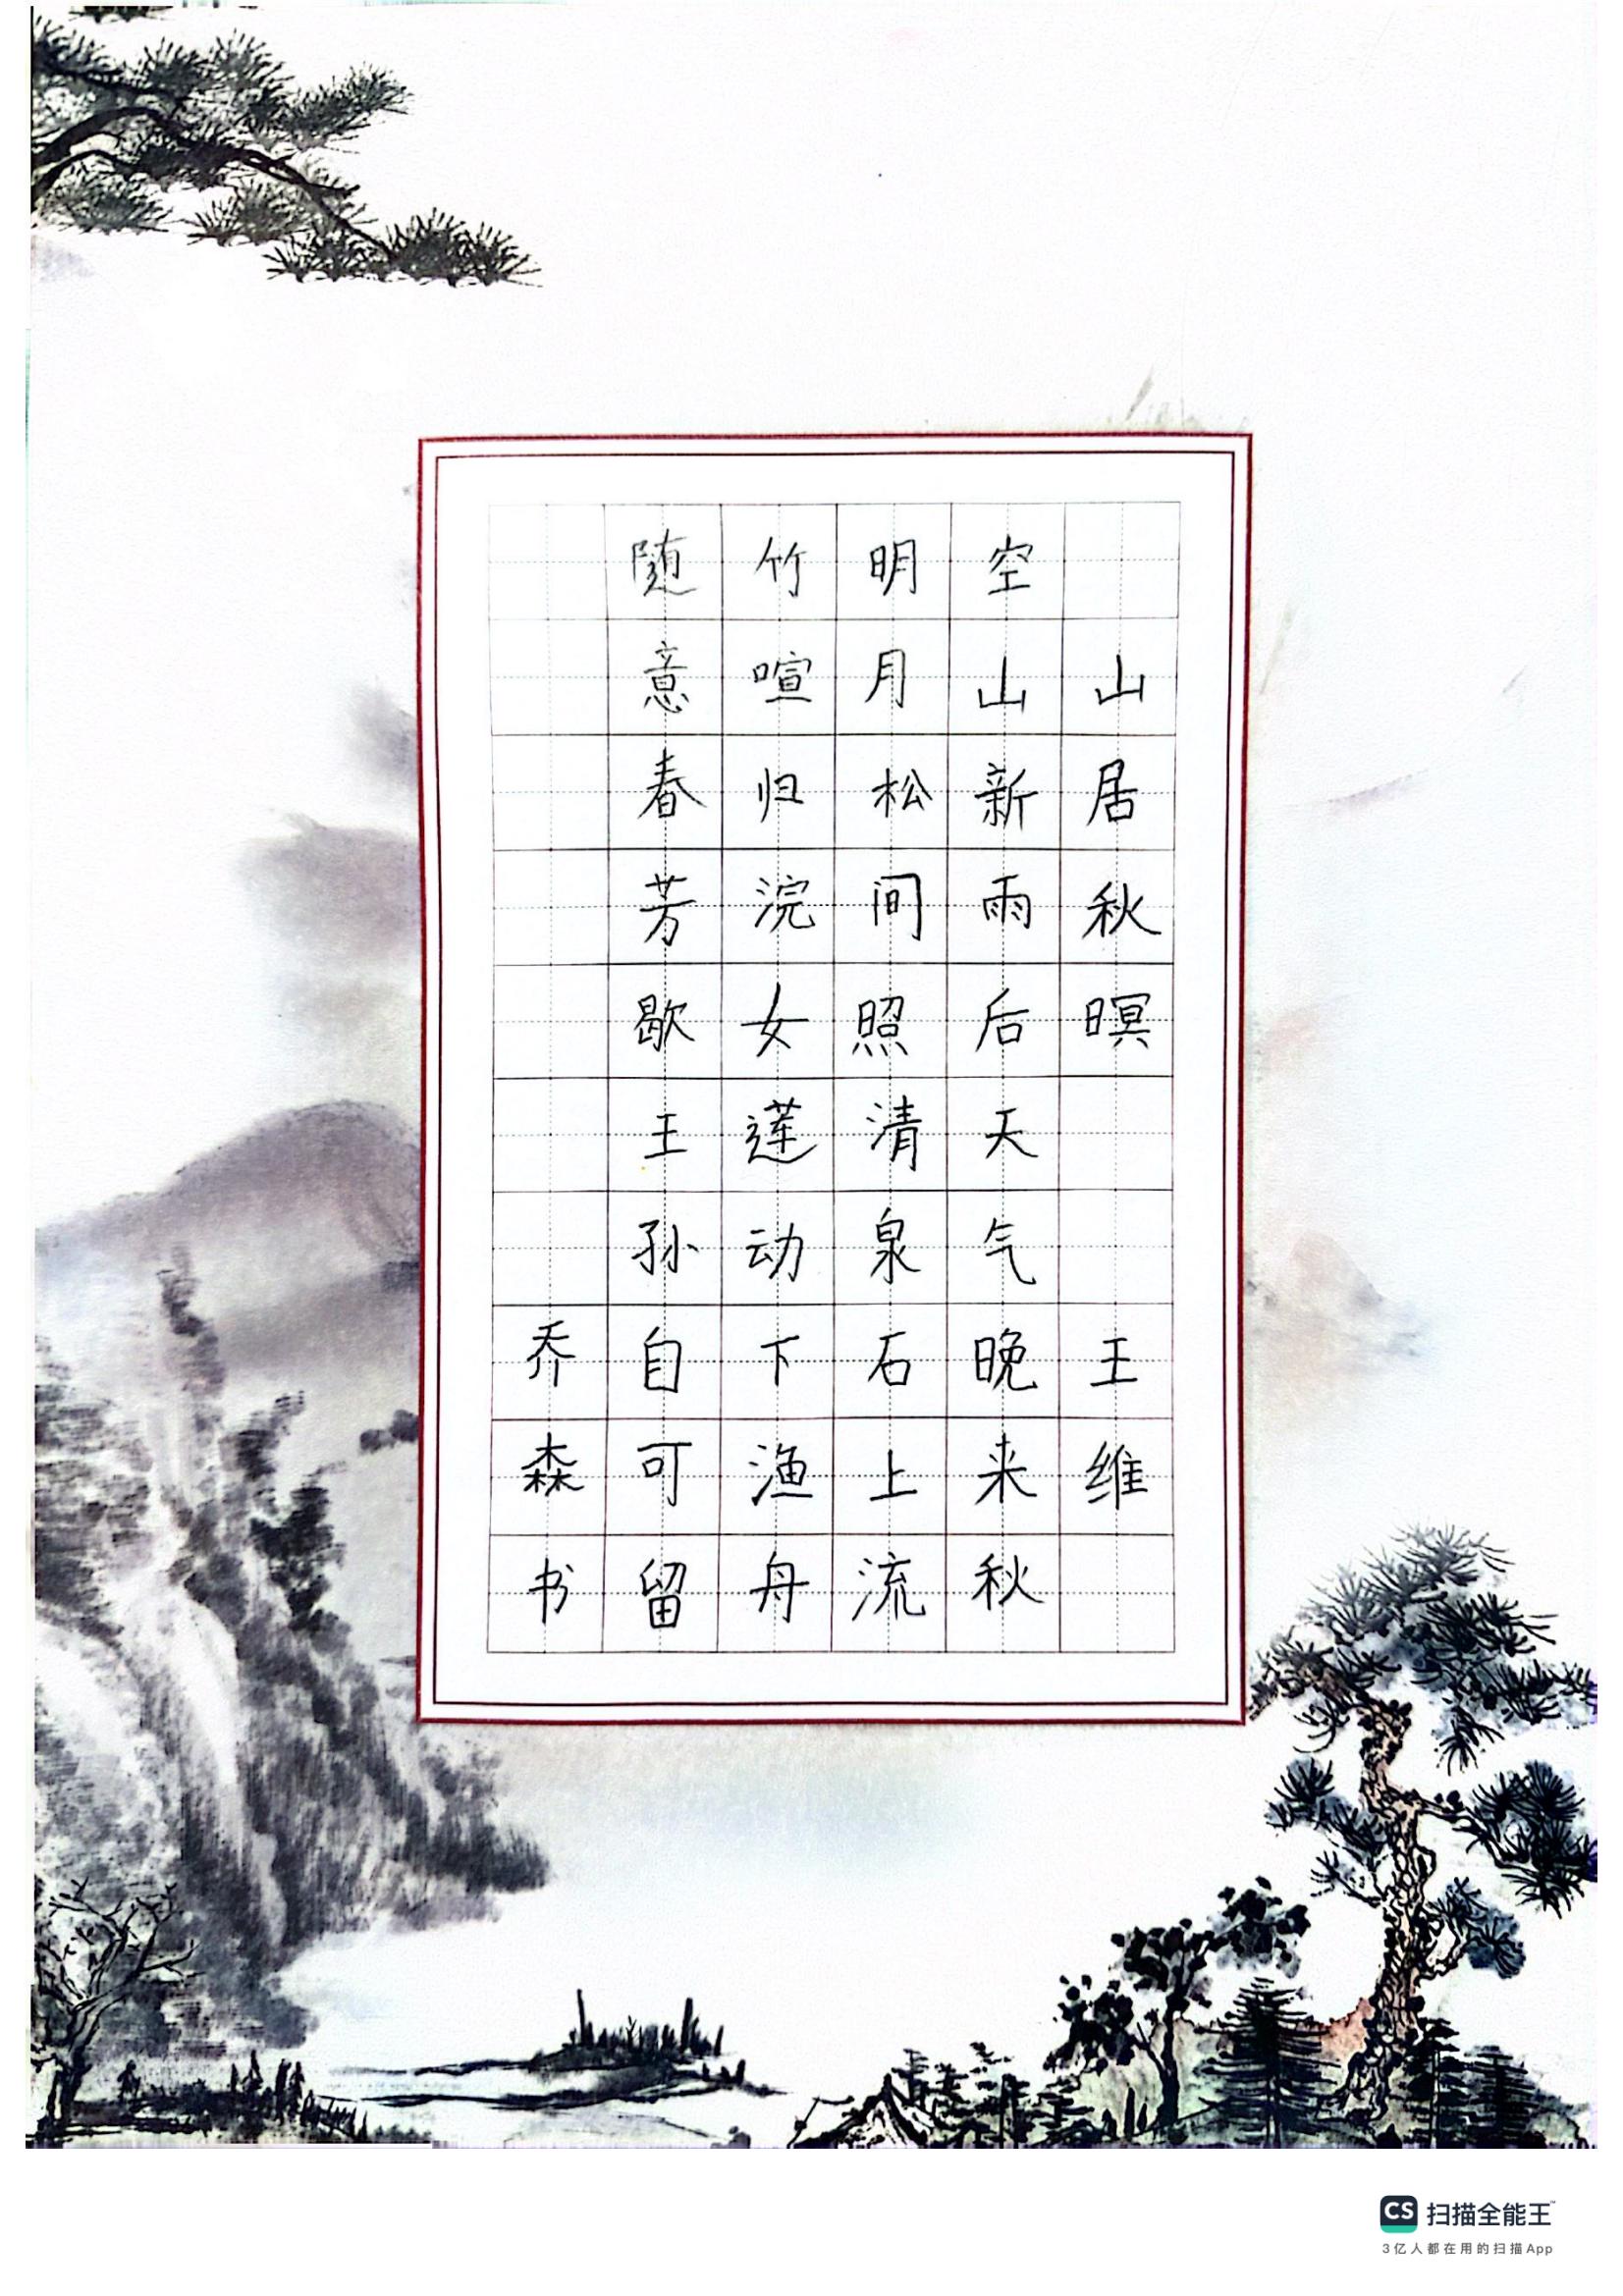 山居秋暝 王维
空山新雨后天气晚来秋
明月松间照清泉石上流
竹喧归浣女莲动下渔舟
随意春芳歇王孙自可留
乔森书
CS 扫描全能王
3亿人都在用的扫描App